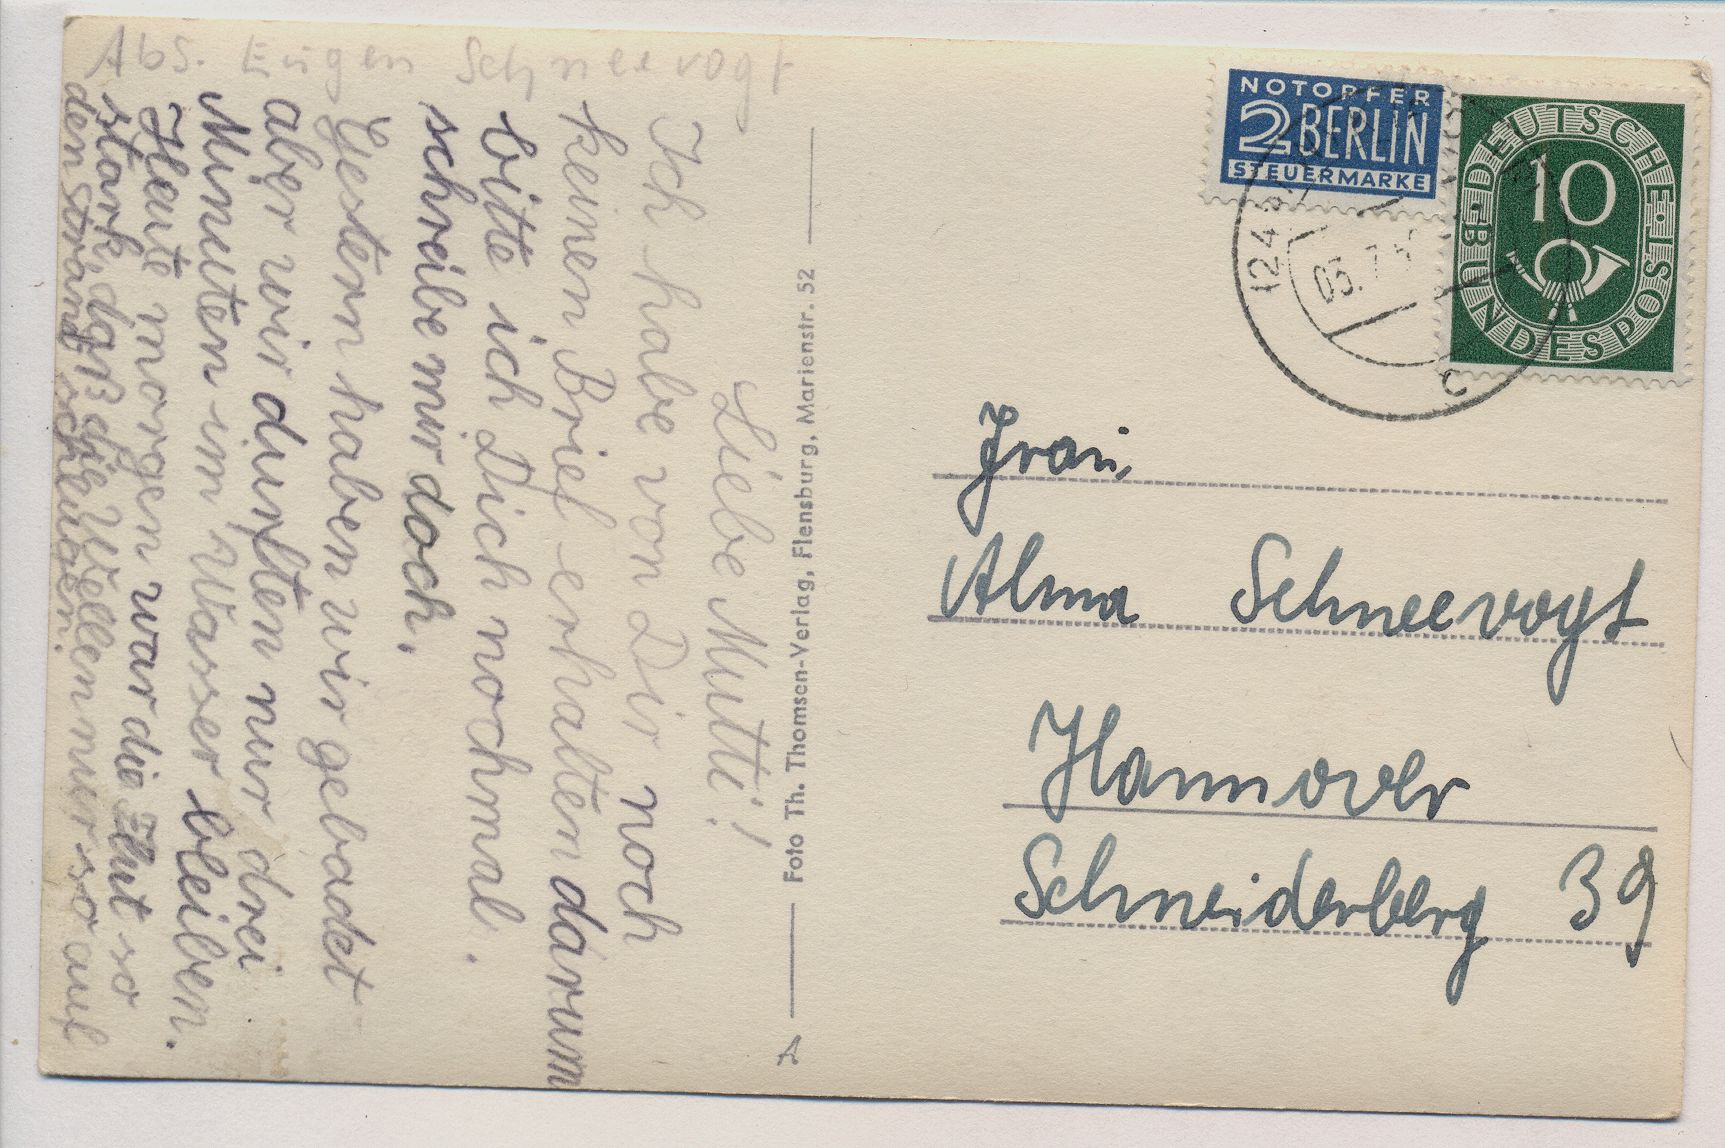 Abs. Eugen Schneevogt
Liebe Mutti!
Ich habe von Dir noch
keinen Brief erhalten darum
bitte ich Dich nochmal.
schreibe mir doch.
Gestern haben wir gebadet
aber wir durften nur drei
Minuten im Wasser bleiben.
Heute morgen war die Flut so
stark, daß die Wellen nur so auf
den strand
Foto Th. Thomsen-Verlag, Flensburg, Marienstr. 52
A
NOTOPFER
2 BERLIN
STEUERMARKE
DEUTSCHE BUNDESPOST
10
(24
03.7.5
c
Frau
Alma Schneevogt
Hannover
Schneiderberg 39